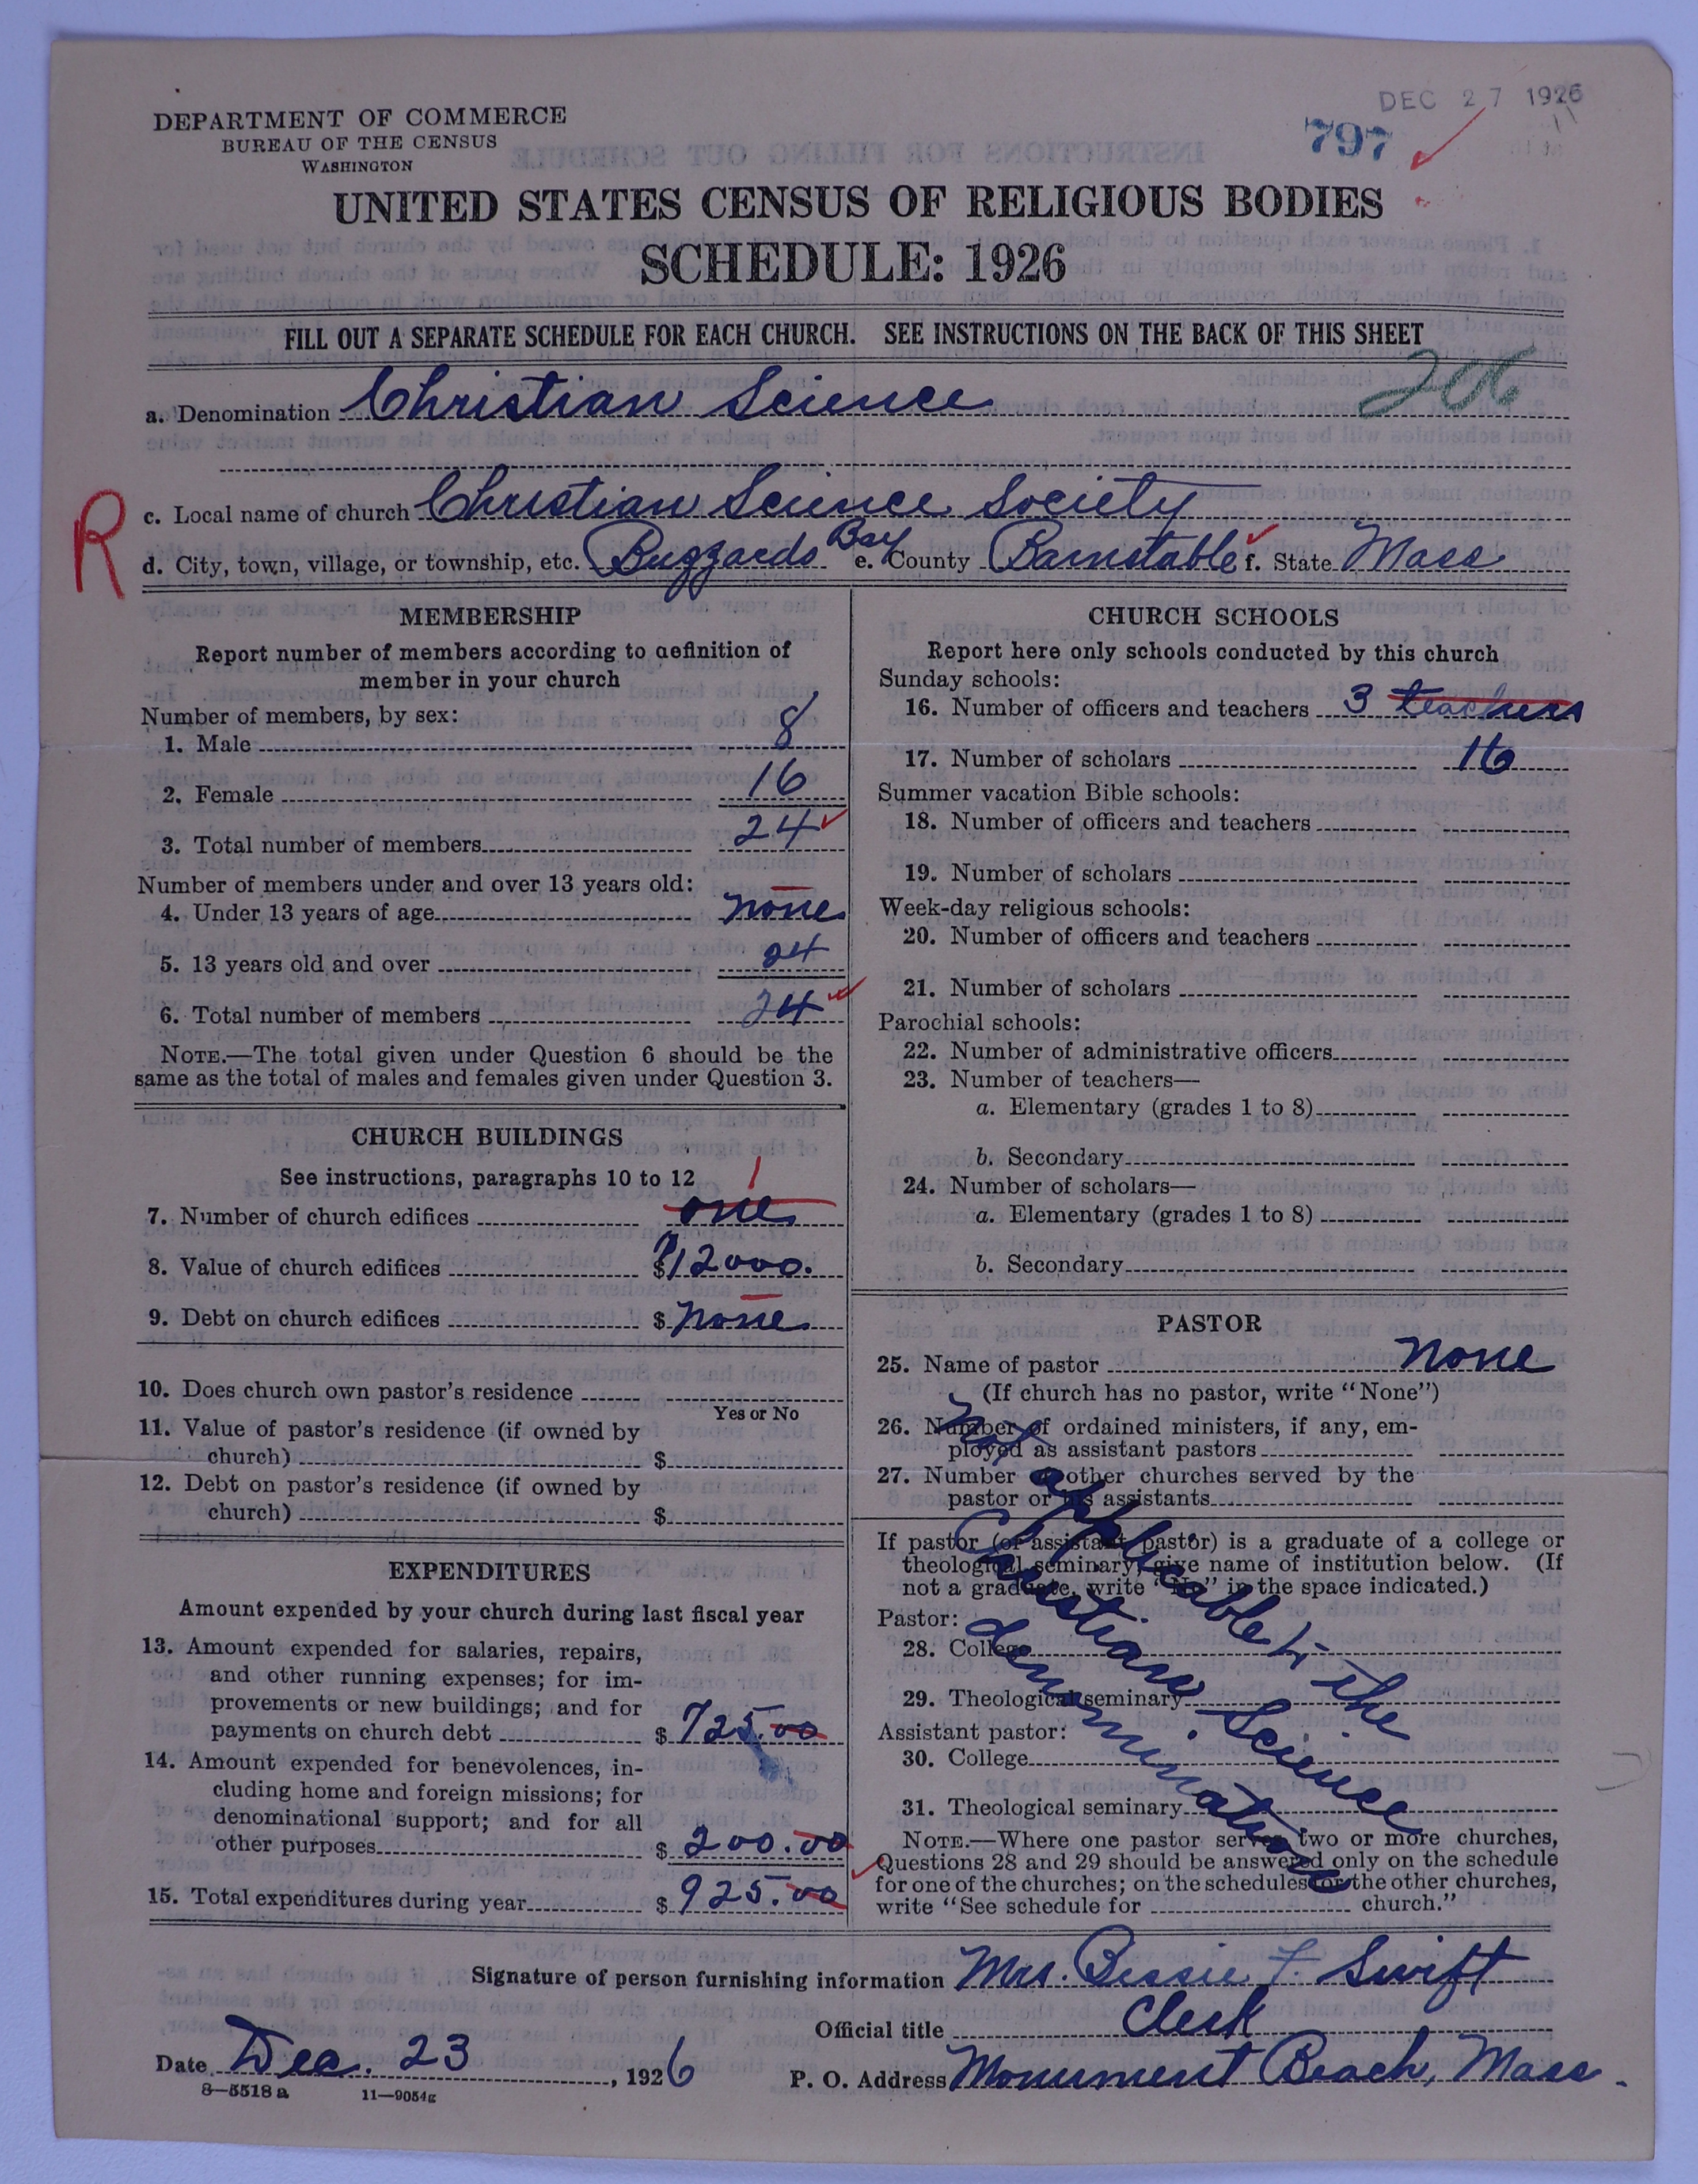 DEC 27 1926
DEPARTMENT OF COMMERCE
BUREAU OF THE CENSUS
WASHINGTON
797
UNITED STATES CENSUS OF RELIGIOUS BODIES
SCHEDULE: 1926
FILL OUT A SEPARATE SCHEDULE FOR EACH CHURCH. SEE INSTRUCTIONS ON THE BACK OF THIS SHEET
a. Denomination Christian Science
R
c. Local name of church Christian Science Society
d. City, town, village, or township, etc. Buzzards Bay e. County Barnstable f. State Mass
MEMBERSHIP
Report number of members according to definition of
member in your church
Number of members, by sex:
1. Male 8
2. Female 16
3. Total number of members 24
Number of members under and over 13 years old:
4. Under 13 years of age none
5. 13 years old and over 24
6. Total number of members 24
NOTE.—The total given under Question 6 should be the
same as the total of males and females given under Question 3.
CHURCH BUILDINGS
See instructions, paragraphs 10 to 12
1
7. Number of church edifices one
8. Value of church edifices $12000.
9. Debt on church edifices $ none
10. Does church own pastor's residence
Yes or No
11. Value of pastor's residence (if owned by
church) $
12. Debt on pastor's residence (if owned by
church) $
EXPENDITURES
Amount expended by your church during last fiscal year
13. Amount expended for salaries, repairs,
and other running expenses; for im-
provements or new buildings; and for
payments on church debt $ 725.00
14. Amount expended for benevolences, in-
cluding home and foreign missions; for
denominational support; and for all
other purposes $ 200.00
15. Total expenditures during year $ 925.00
CHURCH SCHOOLS
Report here only schools conducted by this church
Sunday schools:
16. Number of officers and teachers 3 teachers
17. Number of scholars 16
Summer vacation Bible schools:
18. Number of officers and teachers
19. Number of scholars
Week-day religious schools:
20. Number of officers and teachers
21. Number of scholars
Parochial schools:
22. Number of administrative officers
23. Number of teachers—
a. Elementary (grades 1 to 8)
b. Secondary
24. Number of scholars—
a. Elementary (grades 1 to 8)
b. Secondary
PASTOR
25. Name of pastor None
(If church has no pastor, write "None")
26. Number of ordained ministers, if any, em-
ployed as assistant pastors
27. Number of other churches served by the
pastor or his assistants
If pastor (or assistant pastor) is a graduate of a college or
theological seminary, give name of institution below. (If
not a graduate, write "No" in the space indicated.)
Pastor:
28. College
29. Theological seminary
Assistant pastor:
30. College
31. Theological seminary
Not applicable to the
Christian Science
denomination
NOTE.—Where one pastor serves two or more churches,
Questions 28 and 29 should be answered only on the schedule
for one of the churches; on the schedules for the other churches,
write "See schedule for church."
Signature of person furnishing information Mrs. Bessie F. Swift
Official title Clerk
Date Dec. 23, 1926 P. O. Address Monument Beach, Mass.
8—5518a 11—9054g